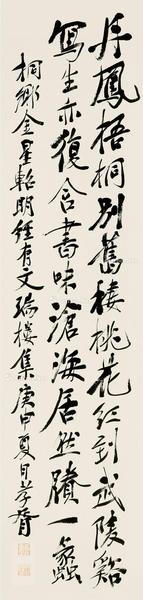 丹鳳梧桐別舊棲桃花紅到武陵谿
寫生亦復含書味滄海居然蹟一蠡
桐鄉金星軺明經有文瑞樓集庚申夏日孝胥